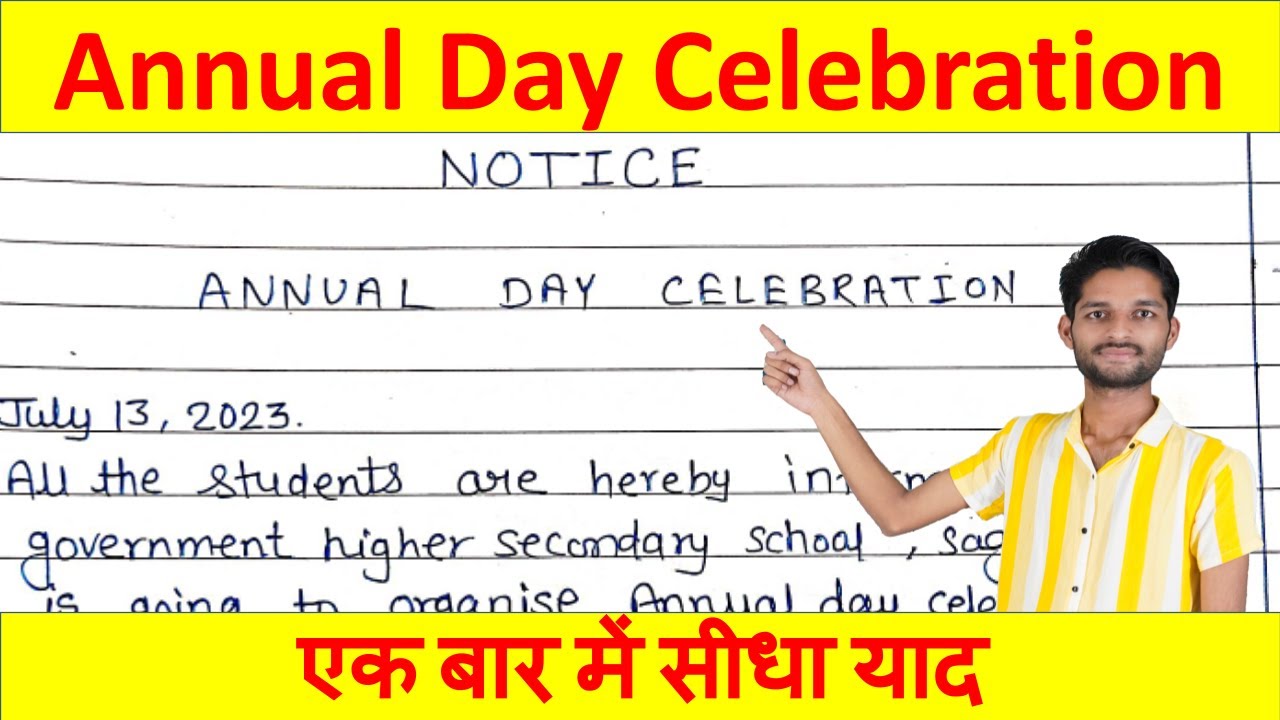 Annual Day Celebration
NOTICE
ANNUAL DAY CELEBRATION
July 13, 2023.
All the students are hereby
government higher secondary school,
is going to organise Annual day
एक बार में सीधा याद